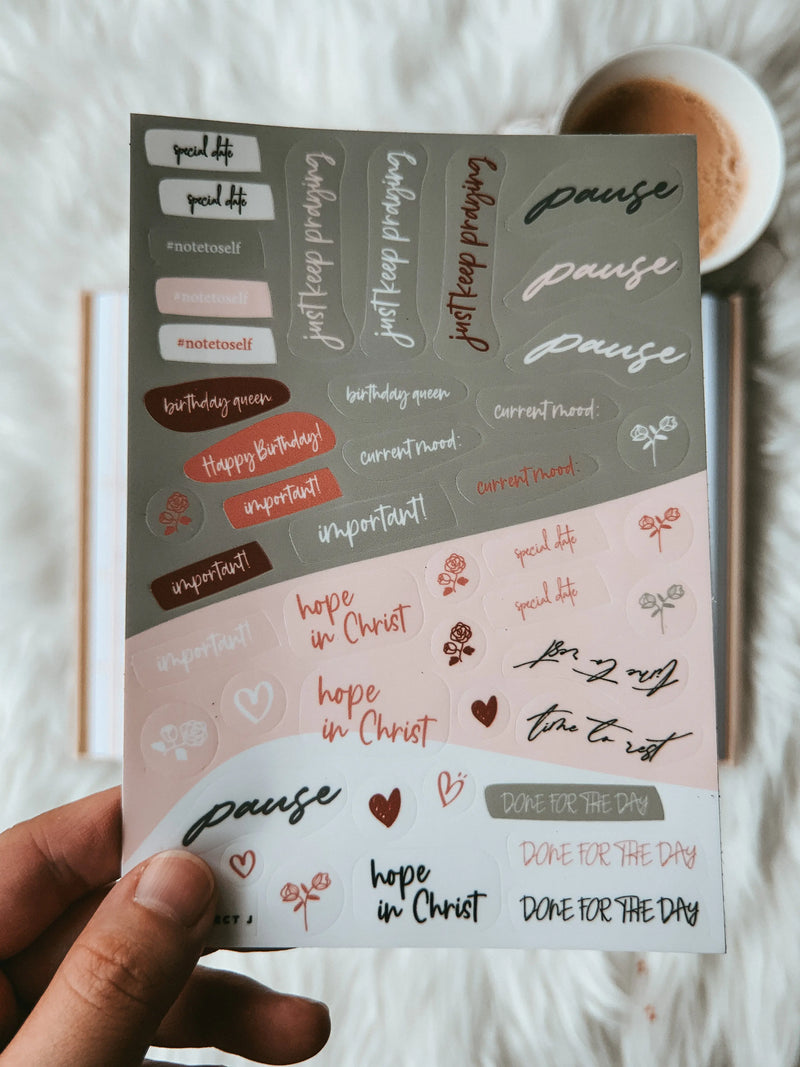 special date
special date
#notetoself
#notetoself
#notetoself
just keep praying
just keep praying
just keep praying
pause
pause
pause
birthday queen
birthday queen
current mood:
Happy Birthday!
current mood:
current mood:
important!
important!
important!
important!
special date
special date
hope
in Christ
hope
in Christ
time to rest
time to rest
pause
DONE FOR THE DAY
DONE FOR THE DAY
DONE FOR THE DAY
hope
in Christ
J